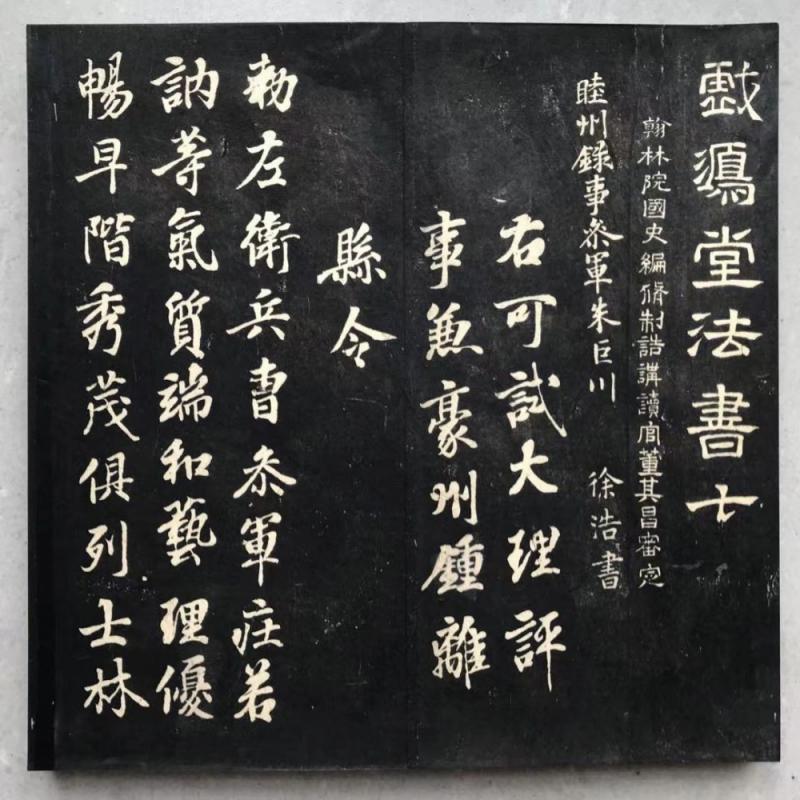 戲鴻堂法書十
翰林院國史編修制誥講讀官董其昌審定
睦州錄事參軍朱巨川 徐浩書
右可試大理評
事兼豪州鍾離
縣令
勑左衛兵曹叅軍莊若
訥等氣質端和藝理優
暢早階秀茂俱列士林